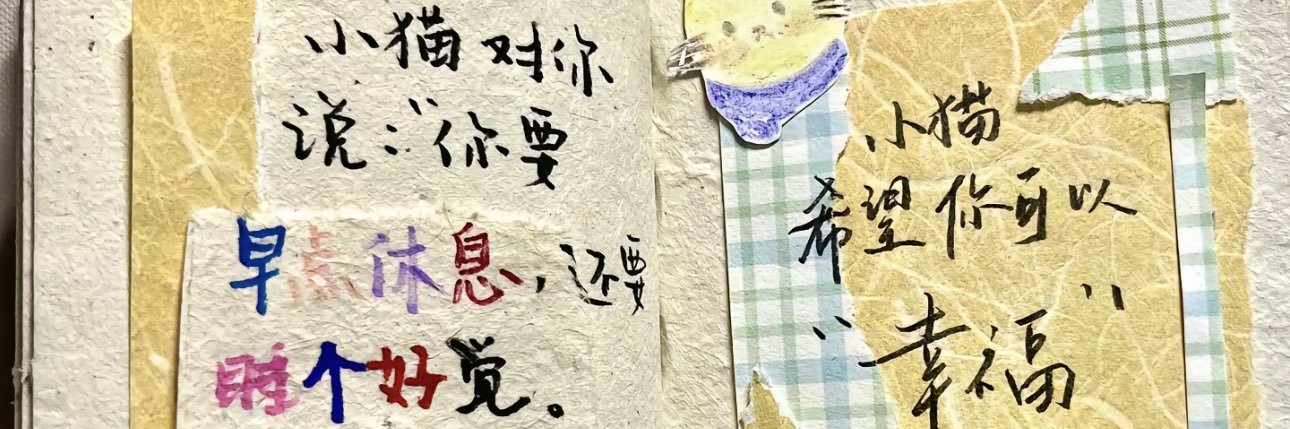 小猫对你
说："你要
早点休息，还要
睡个好觉。
小猫
希望你可以
"幸福"